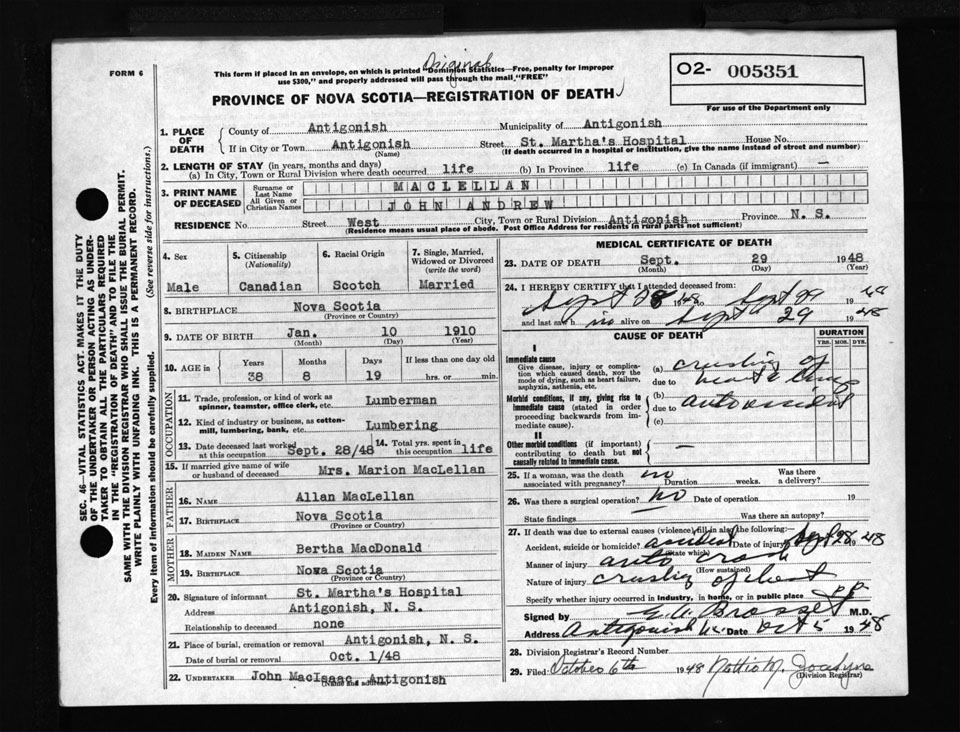 Original
FORM 6
This form if placed in an envelope, on which is printed "Dominion Statistics—Free, penalty for improper
use $300," and properly addressed will pass through the mail, "FREE"
O2- 005351
PROVINCE OF NOVA SCOTIA—REGISTRATION OF DEATH
For use of the Department only
1. PLACE OF DEATH { County of Antigonish Municipality of Antigonish
If in City or Town Antigonish Street St. Martha's Hospital House No.
(Name) (If death occurred in a hospital or institution, give the name instead of street and number)
2. LENGTH OF STAY (in years, months and days)
(a) In City, Town or Rural Division where death occurred life (b) In Province life (c) In Canada (if immigrant) —
3. PRINT NAME OF DECEASED { Surname or Last Name MACLELLAN
All Given or Christian Names JOHN ANDREW
RESIDENCE No. Street West City, Town or Rural Division Antigonish Province N. S.
(Residence means usual place of abode. Post Office Address for residents in rural parts not sufficient)
4. Sex Male
5. Citizenship (Nationality) Canadian
6. Racial Origin Scotch
7. Single, Married, Widowed or Divorced (write the word) Married
8. BIRTHPLACE Nova Scotia
(Province or Country)
9. DATE OF BIRTH Jan. 10 1910
(Month) (Day) (Year)
10. AGE in { Years Months Days If less than one day old
38 8 19 hrs. or min.
OCCUPATION
11. Trade, profession, or kind of work as
spinner, teamster, office clerk, etc. Lumberman
12. Kind of industry or business, as cotten-
mill, lumbering, bank, etc. Lumbering
13. Date deceased last worked at this occupation Sept. 28/48
14. Total yrs. spent in this occupation life
15. If married give name of wife
or husband of deceased Mrs. Marion MacLellan
FATHER
16. NAME Allan MacLellan
17. BIRTHPLACE Nova Scotia
(Province or Country)
MOTHER
18. MAIDEN NAME Bertha MacDonald
19. BIRTHPLACE Nova Scotia
(Province or Country)
20. Signature of informant St. Martha's Hospital
Address Antigonish, N. S.
Relationship to deceased none
21. Place of burial, cremation or removal Antigonish, N. S.
Date of burial or removal Oct. 1/48
22. UNDERTAKER John MacIsaac, Antigonish
(Name and address)
MEDICAL CERTIFICATE OF DEATH
23. DATE OF DEATH Sept. 29 1948
(Month) (Day) (Year)
24. I HEREBY CERTIFY that I attended deceased from:
Sept 28 1948 to Sept 29 1948
and last saw him alive on Sept 29 1948
CAUSE OF DEATH
DURATION
YRS. MOS. DYS.
I
Immediate cause
Give disease, injury or complica-
tion which caused death, NOT the
mode of dying, such as heart failure,
asphyxia, asthenia, etc.
(a) crushing of
due to heart & lungs
Morbid conditions, if any, giving rise to
immediate cause (stated in order
proceeding backwards from im-
mediate cause).
(b)
due to auto accident
(c)
II
Other morbid conditions (if important)
contributing to death but not
causally related to immediate cause. —
25. If a woman, was the death no Was there
associated with pregnancy? Duration weeks. a delivery?
26. Was there a surgical operation? no Date of operation 19
State findings Was there an autopsy?
27. If death was due to external causes (violence) fill in also the following:
Accident, suicide or homicide? accident Date of injury Sept 28 1948
(State which)
Manner of injury auto crash
(How sustained)
Nature of injury crushing of chest
Specify whether injury occurred in industry, in home, or in public place
Signed by M.D.
Address Antigonish Date Oct 5 1948
28. Division Registrar's Record Number
29. Filed October 6th 1948
(Division Registrar)
SEC. 46—VITAL STATISTICS ACT. MAKES IT THE DUTY
OF THE UNDERTAKER OR PERSON ACTING AS UNDER-
TAKER TO OBTAIN ALL THE PARTICULARS REQUIRED
IN THE "REGISTRATION OF DEATH" AND TO FILE THE
SAME WITH THE DIVISION REGISTRAR WHO SHALL ISSUE THE BURIAL PERMIT.
WRITE PLAINLY WITH UNFADING INK. THIS IS A PERMANENT RECORD.
Every item of information should be carefully supplied. (See reverse side for instructions.)